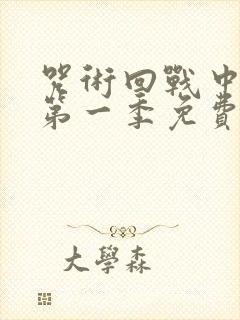 咒術回戰中
第一季免費
大學森